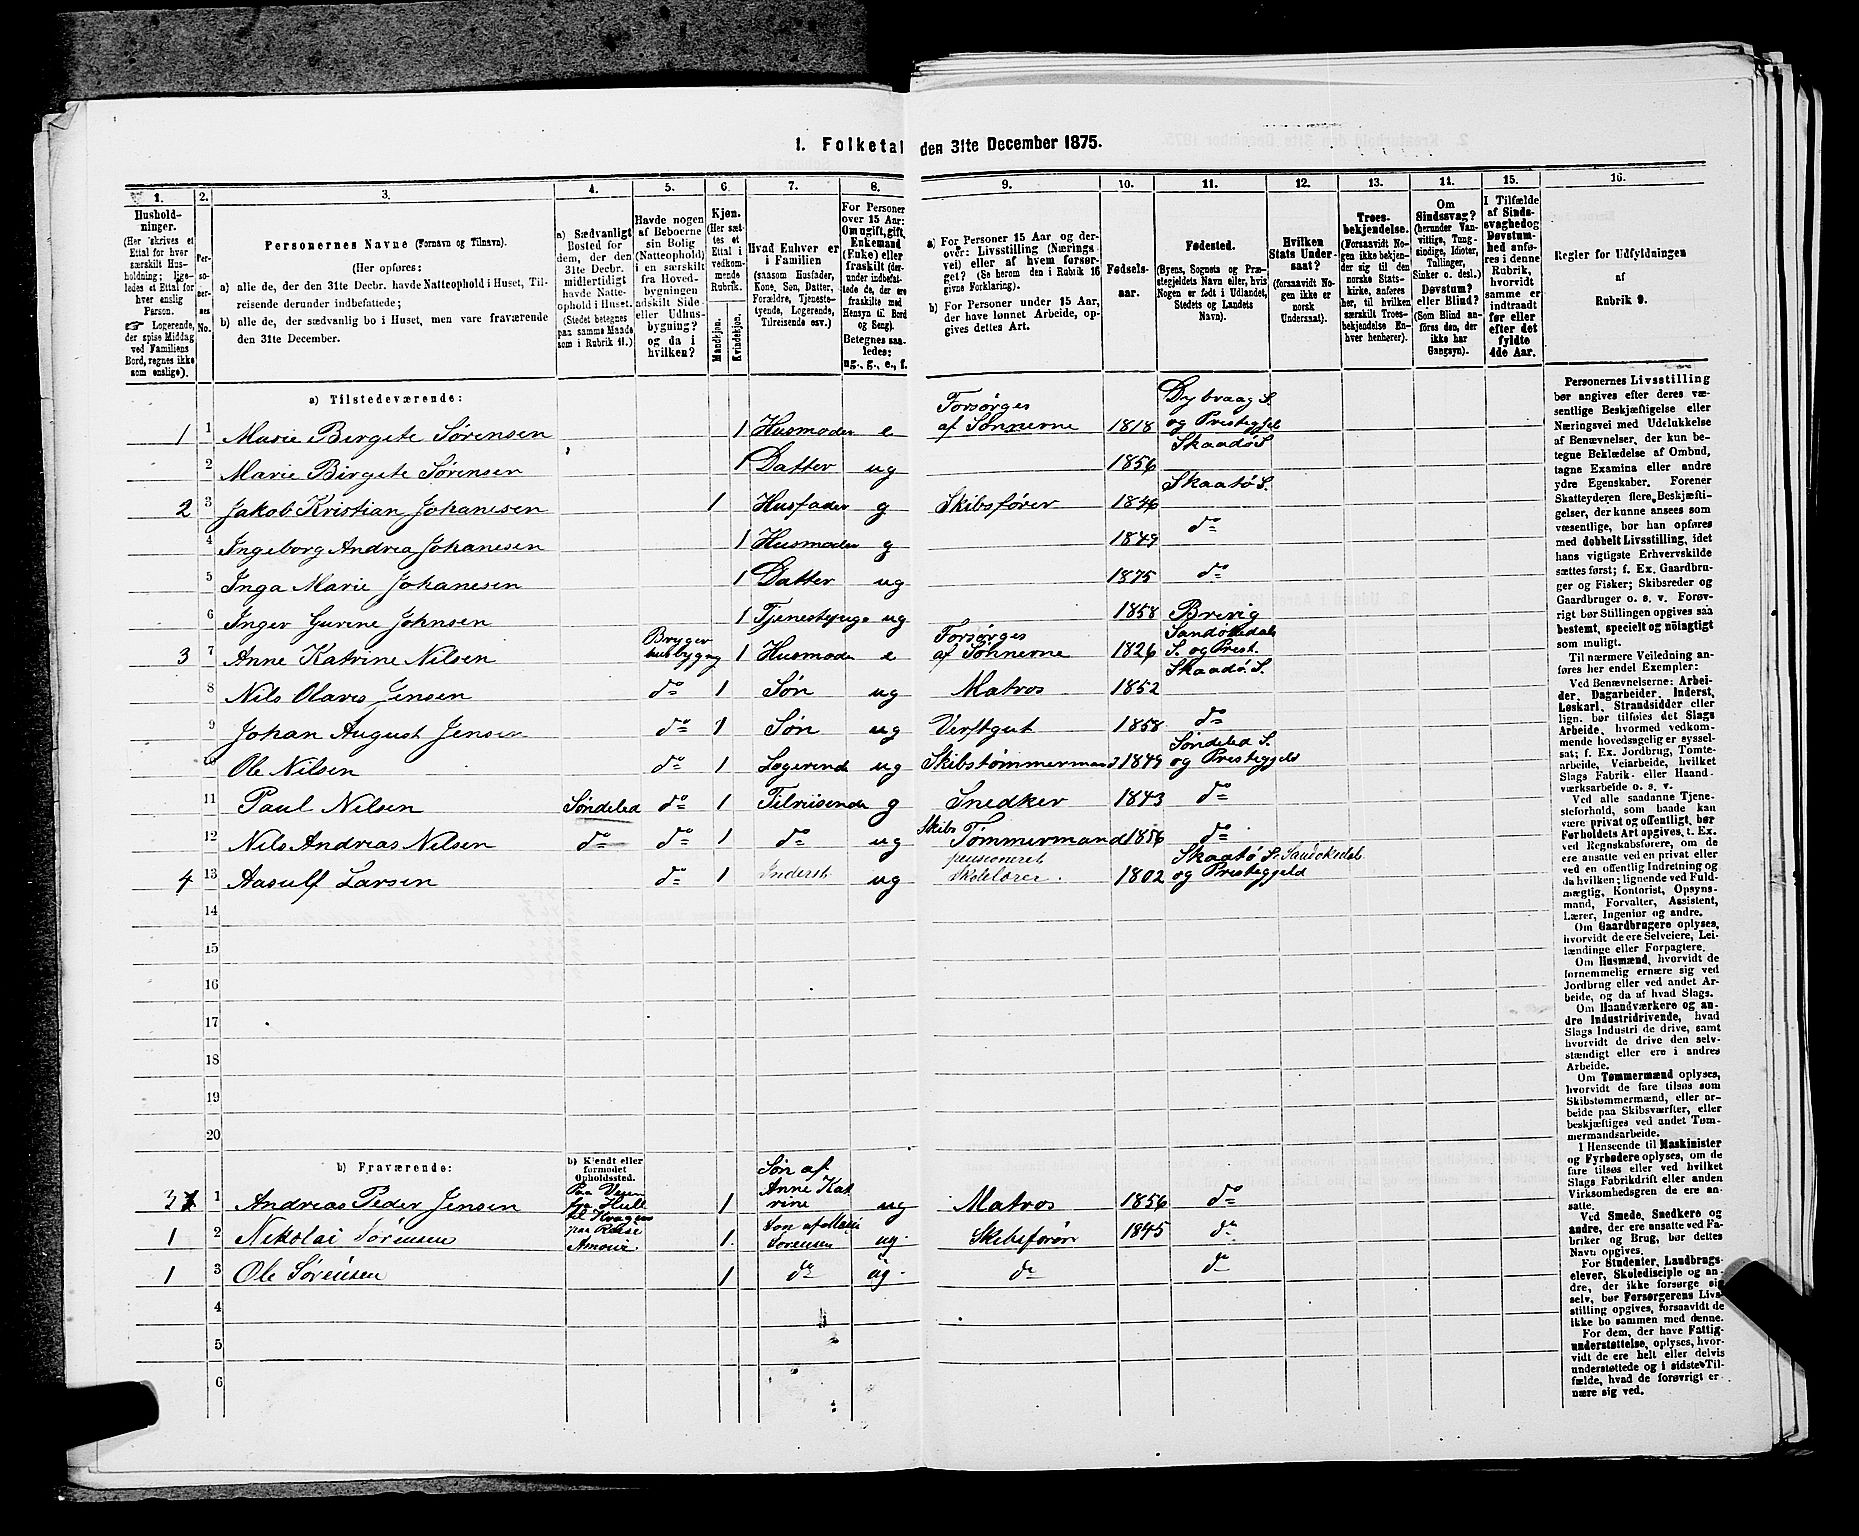 1. Folketal den 31te December 1875.
1. 2. 3. 4. 5. 6. 7. 8. 9. 10. 11. 12. 13. 14. 15. 16.
Hushold-
ninger.
(Her skrives et
Ettal for hver
særskilt Hus-
holdning; lige-
ledes et Ettal for
hver enslig
Person.
☞ Logerende,
der spise Middag
ved Familiens
Bord, regnes ikke
som enslige).
Per-
so-
ner-
nes
No.
Personernes Navne (Fornavn og Tilnavn).
(Her opføres:
a) alle de, der den 31te Decbr. havde Natteophold i Huset, Til-
reisende derunder indbefattede;
b) alle de, der sædvanlig bo i Huset, men vare fraværende
den 31te December.
a) Sædvanligt
Bosted for
dem, der den
31te Decbr.
midlertidigt
havde Natte-
ophold i Huset.
(Stedet betegnes
paa samme Maade
som i Rubrik 11.)
Havde nogen
af Beboerne
sin Bolig
(Natteophold)
i en særskilt
fra Hoved-
bygningen
adskilt Side-
eller Udhus-
bygning?
og da i
hvilken?
Kjøn.
(Her sæt-
tes et
Ettal i
vedkom-
mende
Rubrik.
Mandkjøn.
Kvindekjøn.
Hvad Enhver er
i Familien
(saasom Husfader,
Kone, Søn, Datter,
Forældre, Tjeneste-
tyende, Logerende,
Tilreisende osv.)
For Personer
over 15 Aar:
Om ugift, gift,
Enkemand
(Enke) eller
fraskilt (der-
under indbefat-
tede de, der ere
fraskilte med
Hensyn til Bord
og Seng).
Betegnes saa-
ledes:
ug., g., e., f.
a) For Personer 15 Aar og der-
over: Livsstilling (Nærings-
vei) eller af hvem forsør-
get? (Se herom den i Rubrik 16
givne Forklaring).
b) For Personer under 15 Aar,
der have lønnet Arbeide, op-
gives dettes Art.
Fødsels-
aar.
Fødested.
(Byens, Sognets og Præ-
stegjeldets Navn eller, hvis
Nogen er født i Udlandet,
Stedets og Landets
Navn).
Hvilken
Stats Under-
saat?
(forsaavidt No-
gen ikke er
norsk
Undersaat).
Troes-
bekjendelse.
(Forsaavidt No-
gen ikke bekjen-
der sig til den
norske Stats-
kirke, anføres
her, til hvilken
særskilt Troes-
bekjendelse En-
hver henhører).
Om
Sindssvag?
(herunder Van-
vittige, Tung-
sindige, Idioter,
Tullinger,
Sinker o. desl.)
Døvstum?
eller Blind?
(Som Blind an-
føres den, der
ikke har
Gangsyn).
I Tilfælde
af Sinds-
svaghed og
Døvstum-
hed anfø-
res i denne
Rubrik,
hvorvidt
samme er
indtraadt
før eller
efter det
fyldte
4de Aar.
Regler for Udfyldningen
af
Rubrik 9.
a) Tilstedeværende:
1 1 Marie Birgete Sørensen 1 Husmoder e Forsørges af Sønnerne 1818 Dybvaag S. og Prestegjeld
2 Marie Birgete Sørensen 1 Datter ug 1856 Skaadø S.
2 3 Jakob Kristian Johanesen 1 Husfader g Skibsfører 1846 Skaatø S.
4 Ingeborg Andrea Johanesen 1 Husmoder g 1849 do
5 Inga Marie Johanesen 1 Datter ug 1875 do
6 Inger Gurine Johnsen 1 Tjenestepige ug 1858 Brevig
3 7 Anne Katrine Nilsen Bryger husbygng 1 Husmoder e Forsørges af Sønnerne 1826 Sandøkedals S. og Prest.
8 Nils Olaves Jensen do 1 Søn ug Matros 1852 Skaadø S.
9 Johan August Jensen do 1 Søn ug Verftgut 1858 do
Ole Nilsen do 1 Logerende ug Skibstømmermand 1849 Søndeled S. og Prestegjeld
11 Paul Nilsen Søndeled do 1 Tilreisende g Snedker 1843 do
12 Nils Andreas Nilsen do do 1 do ug Skibs Tømmermand 1856 do
4 13 Aasulf Larsen do 1 Inderst ug pensioneret Skolelærer. 1802 Skaatø S. Sandøkedal og Prestegjeld
14
15
16
17
18
19
20
b) Fraværende:
b) Kjendt eller
formodet
Opholdssted.
3 1 Andreas Peder Jensen Paa Veien fra Hull til Kragerø 1 Søn af Anne Katrine ug Matros 1856 do
1 2 Nikolai Sørensen paa Reise 1 Søn af Marie Sørensen ug. Skibsfører 1845 do
1 3 Ole Sørensen 1 do ug. do do
4
5
6
Personernes Livsstilling
bør angives efter deres væ-
sentlige Beskjæftigelse eller
Næringsvei med Udelukkelse
af Benævnelser, der kun be-
tegne Beklædelse af Ombud,
tagne Examina eller andre
ydre Egenskaber. Forener
Skatteyderen flere Beskjæfti-
gelser, der kunne ansees som
væsentlige, bør han opføres
med dobbelt Livsstilling, idet
hans vigtigste Erhvervskilde
sættes først; f. Ex. Gaardbru-
ger og Fisker; Skibsreder og
Gaardbruger o. s. v. Forøv-
rigt bør Stillingen opgives saa
bestemt, specielt og nøiagtigt
som muligt.
Til nærmere Veiledning an-
føres her endel Exempler:
Ved Benævnelserne: Arbei-
der, Dagarbeider, Inderst,
Løskarl, Strandsidder eller
lign. bør tilføies det Slags
Arbeide, hvormed vedkom-
mende hovedsagelig er syssel-
sat; f. Ex. Jordbrug, Tomte-
arbeide, Veiarbeide, hvilket
Slags Fabrik- eller Haand-
værksarbeide o. s. v.
Ved alle saadanne Tjene-
steforhold, som baade kan
være privat og offentligt, bør
Forholdets Art opgives, t. Ex.
ved Regnskabsførere, om de
ere ansatte ved en privat eller
ved en offentlig Indretning og
da hvilken; lignende ved Fuld-
mægtig, Kontorist, Opsyns-
mand, Forvalter, Assistent,
Lærer, Ingeniør og andre.
Om Gaardbrugere oplyses,
hvorvidt de ere Selveiere, Lei-
lændinge eller Forpagtere.
Om Husmænd, hvorvidt de
fornemmelig ernære sig ved
Jordbrug eller ved andet Ar-
beide, og da af hvad Slags.
Om Haandværkere og an-
dre Industridrivende, hvad
Slags Industri de drive, samt
hvorvidt de drive den selv-
stændigt eller ere i andres
Arbeide.
Om Tømmermænd oplyses,
hvorvidt de fare tilsøs som
Skibstømmermænd, eller ar-
beide paa Skibsværfter, eller
beskjæftiges ved andet Tøm-
mermandsarbeide.
I Henseende til Maskinister
og Fyrbødere oplyses, om de
fare tilsøs eller ved hvilket
Slags Fabrikdrift eller anden
Virksomhedsgren de ere an-
satte.
Ved Smede, Snedkere og
andre, der ere ansatte ved Fa-
briker og Brug, bør dettes
Navn opgives.
For Studenter, Landbrugs-
elever, Skoledisciple og an-
dre, der ikke forsørge sig
selv, bør Forsørgerens Livs-
stilling opgives, forsaavidt de
ikke bo sammen med denne.
For dem, der have Fattig-
understøttelse, oplyses, hvor-
vidt de ere helt eller delvis
understøttede og i sidste Til-
fælde, hvad de forøvrigt er-
nære sig ved.